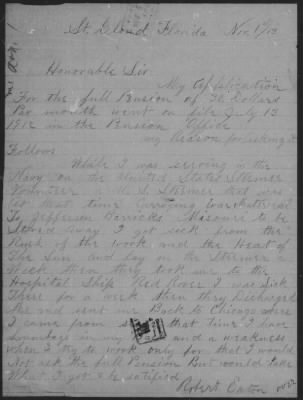 St. Cloud Florida Nov 1/13
Honorable Sir
My Application
For the full Pension of 30 Dollars
Per month went on file July 13
1912 in the Pension Office
my Reason for asking
Follows
While I was serving in the
Navy on the United States Steamer
Volunteer a U. S. Steamer that was
at that time Carrying War Material
To Jefferson Barricks Missouri to be
Stored away I got sick from the
Rush of the work and the Heat of
The Sun and lay on the Steamer a
Week then they took me to the
Hospital Ship Red Rover I was Sick
There for a week then they Discharged
Me and sent me Back to Chicago where
I came from that time I have
in my and a weakness
when I try to work only for that I would
Not ask the full Pension But would take
What I got & be satisfied
Robert Eaton over